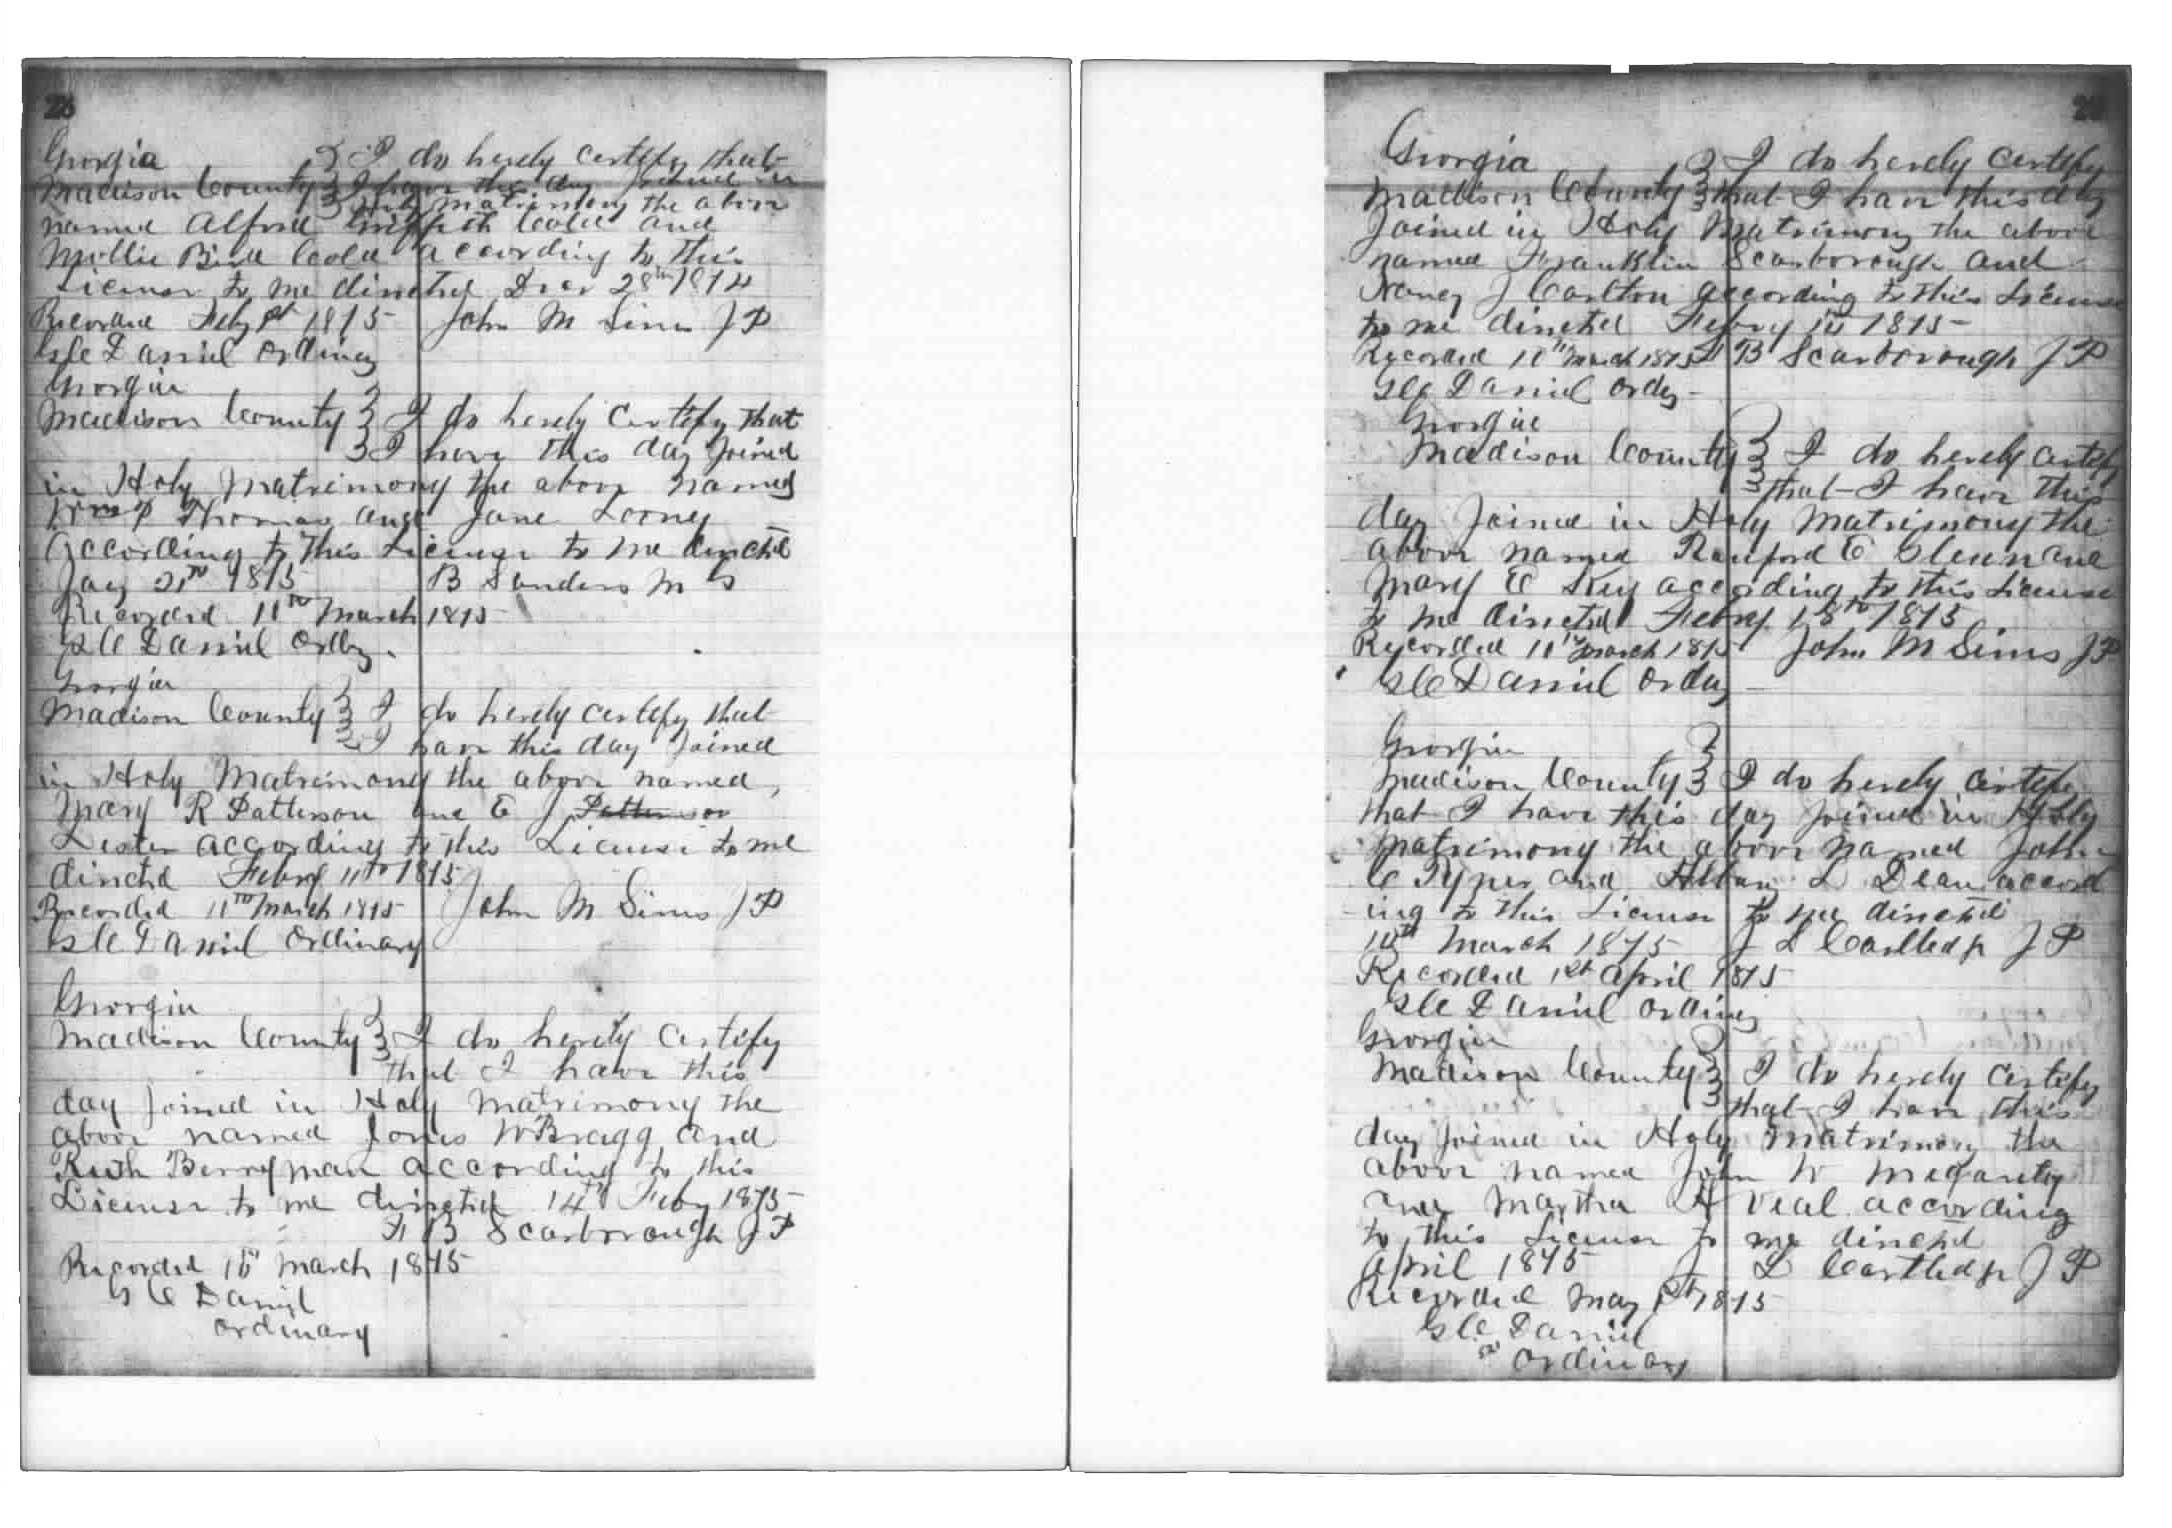 26
Georgia } I do herely certify that
Madison County } I have this day Joined in
Holy matrimony the above
named Alfred Griffeth Cold and
Mollie Bird Cold according to this
License to me directed Decr 28th 1874
Recorded Feby 1st 1875 John M Sims J P
G C Daniel Ordinary
Georgia
Madison County } I do herely Certify that
} I have this day Joined
in Holy Matrimony the above named
Thomas and Jane Looney
according to this License to me directed
Jay 21th 1875 B Sanders M G
Recorded 11th March 1875
G C Daniel Ordy.
Georgia
Madison County } I do herely certify that
I have this day Joined
in Holy Matrimony the above named,
Mary R Patterson and E J Patterson
Lester according to this License to me
directed Febry 11th 1875
Recorded 11th March 1875 John M Sims J P
G C Daniel Ordinary
Georgia
Madison County } I do herely Certify
that I have this
day Joined in Holy Matrimony the
above named Jones W Bragg and
Ruth Berryman according to this
License to me directed 14th Feby 1875
F B Scarborough J P
Recorded 11th March 1875
G C Daniel
Ordinary
Georgia } I do herely Certify
Madison County } that I have this day
Joined in Holy Matrimony the above
named Franklin Scarborough and
Nancy J Carlton according to this License
to me directed Febry 1875
Recorded 11th March 1875 F B Scarborough J P
G C Daniel Ordy
Georgia
Madison County } I do herely certify
that I have this
day Joined in Holy Matrimony the
above named Ranford E Glenn and
Mary E Key according to this License
to me directed Febry. 18th 1875
Recorded 11th March 1875 John M Sims J P
G C Daniel Orday
Georgia
Madison County } I do herely certify
that I have this day Joined in Holy
matrimony the above named John
C Tyner and L Dean accord
ing to this License to me directed
10th March 1875 J L Cartledge J P
Recorded 1st April 1875
G C Daniel Ordinary
Georgia
Madison County } I do herely certify
that I have this
day Joined in Holy Matrimony the
above named John W Megarity
and Martha A Veal according
to this License to me directed
April 1875 J L Cartledge J P
Recorded May 1st 1875
G C Daniel
Ordinary